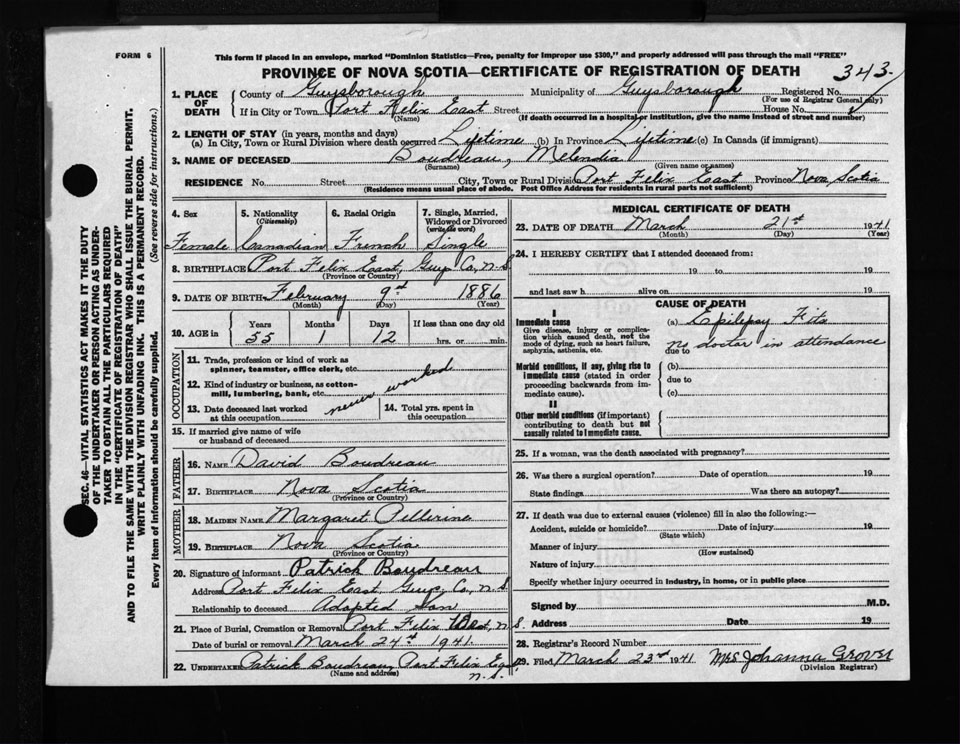 FORM 6
This form if placed in an envelope, marked "Dominion Statistics—Free, penalty for improper use $300," and properly addressed will pass through the mail "FREE"
PROVINCE OF NOVA SCOTIA—CERTIFICATE OF REGISTRATION OF DEATH
343
1. PLACE OF DEATH
County of Guysborough Municipality of Guysborough Registered No.
(For use of Registrar General only)
If in City or Town Port Felix East Street House No.
(Name) (If death occurred in a hospital or institution, give the name instead of street and number)
2. LENGTH OF STAY (in years, months and days)
(a) In City, Town or Rural Division where death occurred Lifetime (b) In Province Lifetime (c) In Canada (if immigrant)
3. NAME OF DECEASED Boudreau, Melendia
(Surname) (Given name or names)
RESIDENCE No. Street City, Town or Rural Division Port Felix East Province Nova Scotia
(Residence means usual place of abode. Post Office Address for residents in rural parts not sufficient)
SEC. 46—VITAL STATISTICS ACT MAKES IT THE DUTY
OF THE UNDERTAKER OR PERSON ACTING AS UNDER-
TAKER TO OBTAIN ALL THE PARTICULARS REQUIRED
IN THE "CERTIFICATE OF REGISTRATION OF DEATH"
AND TO FILE THE SAME WITH THE DIVISION REGISTRAR WHO SHALL ISSUE THE BURIAL PERMIT.
WRITE PLAINLY WITH UNFADING INK. THIS IS A PERMANENT RECORD.
Every item of information should be carefully supplied. (See reverse side for instructions.)
4. Sex 5. Nationality 6. Racial Origin 7. Single, Married,
(Citizenship) Widowed or Divorced
(write the word)
Female Canadian French Single
8. BIRTHPLACE Port Felix East, Guys Co, N.S.
(Province or Country)
9. DATE OF BIRTH February 9th 1886
(Month) (Day) (Year)
10. AGE in Years Months Days If less than one day old
55 1 12 hrs. or min.
OCCUPATION
11. Trade, profession or kind of work as
spinner, teamster, office clerk, etc.
12. Kind of industry or business, as cotton-
mill, lumbering, bank, etc.
never worked
13. Date deceased last worked
at this occupation
14. Total yrs. spent in
this occupation
15. If married give name of wife
or husband of deceased
FATHER
16. NAME David Boudreau
17. BIRTHPLACE Nova Scotia
(Province or Country)
MOTHER
18. MAIDEN NAME Margaret Pellerine
19. BIRTHPLACE Nova Scotia
(Province or Country)
20. Signature of informant Patrick Boudreau
Address Port Felix East, Guys, Co, N.S.
Relationship to deceased Adopted Son
21. Place of Burial, Cremation or Removal Port Felix West, N.S.
Date of burial or removal March 24th 1941
22. UNDERTAKER Patrick Boudreau, Port Felix East
N.S.
(Name and address)
MEDICAL CERTIFICATE OF DEATH
23. DATE OF DEATH March 21st 1941
(Month) (Day) (Year)
24. I HEREBY CERTIFY that I attended deceased from:
19 to 19
and last saw h alive on 19
CAUSE OF DEATH
I
Immediate cause
Give disease, injury or complica-
tion which caused death, not the
mode of dying, such as heart failure,
asphyxia, asthenia, etc.
(a) Epilepsy Fits
due to no doctor in attendance
Morbid conditions, if any, giving rise to
immediate cause (stated in order
proceeding backwards from im-
mediate cause).
(b)
due to
(c)
II
Other morbid conditions (if important)
contributing to death but not
causally related to immediate cause.
25. If a woman, was the death associated with pregnancy?
26. Was there a surgical operation? Date of operation 19
State findings Was there an autopsy?
27. If death was due to external causes (violence) fill in also the following:—
Accident, suicide or homicide? Date of injury 19
(State which)
Manner of injury
(How sustained)
Nature of injury
Specify whether injury occurred in industry, in home, or in public place
Signed by M.D.
Address Date 19
28. Registrar's Record Number
29. Filed March 23rd 1941 Mrs Johanna Grover
(Division Registrar)